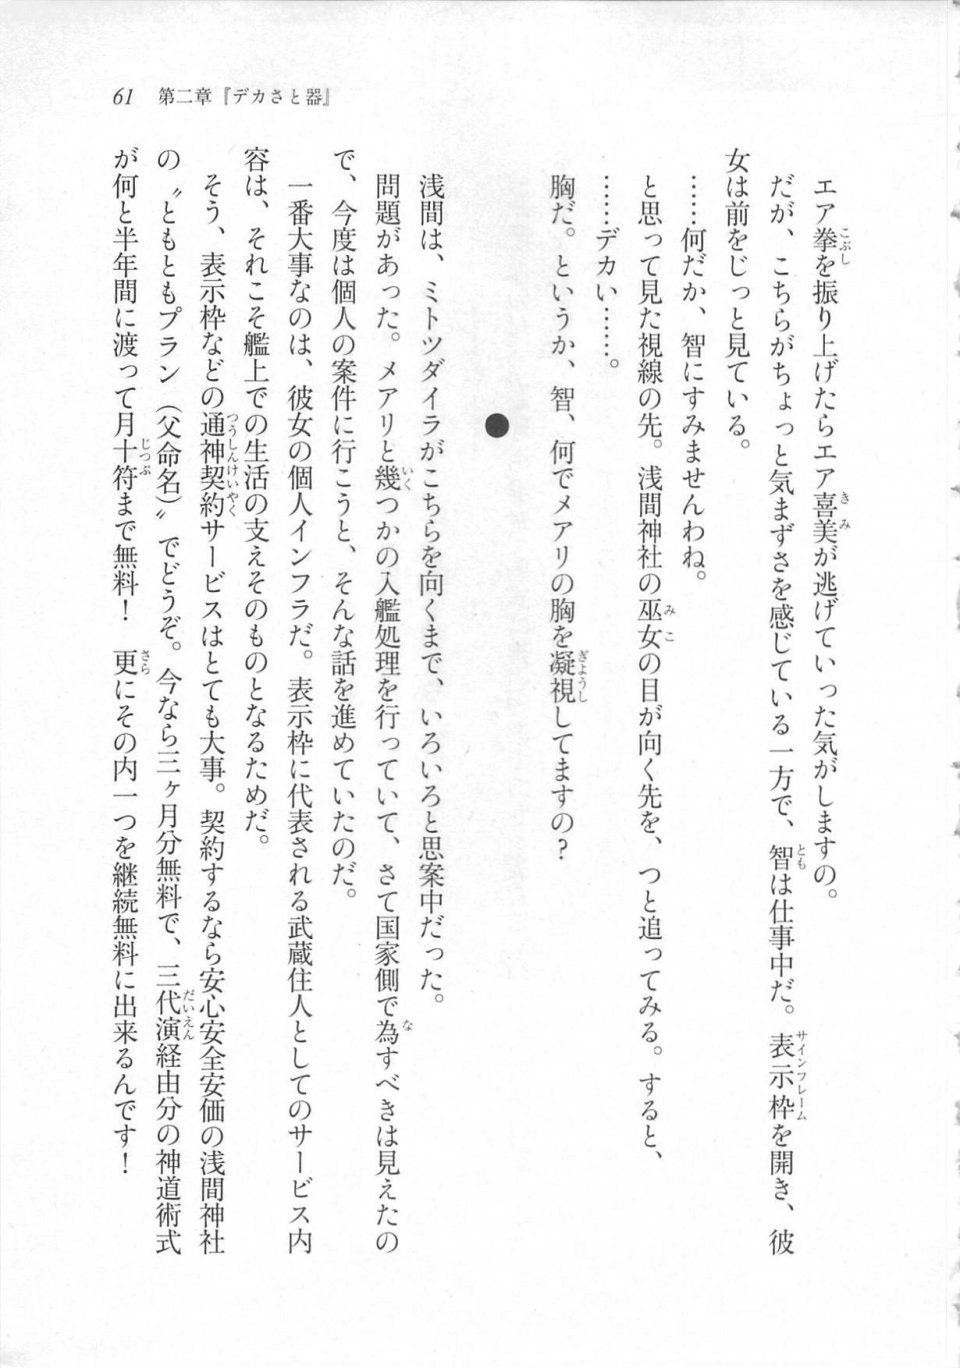 61　第二章『デカさと器』
エア拳を振り上げたらエア喜美が逃げていった気がしますの。
だが、こちらがちょっと気まずさを感じている一方で、智は仕事中だ。表示枠を開き、彼
女は前をじっと見ている。
……何だか、智にすみませんわね。
と思って見た視線の先。浅間神社の巫女の目が向く先を、つと追ってみる。すると、
……デカい……。
胸だ。というか、智、何でメアリの胸を凝視してますの？
●
浅間は、ミトツダイラがこちらを向くまで、いろいろと思案中だった。
問題があった。メアリと幾つかの入艦処理を行っていて、さて国家側で為すべきは見えたの
で、今度は個人の案件に行こうと、そんな話を進めていたのだ。
一番大事なのは、彼女の個人インフラだ。表示枠に代表される武蔵住人としてのサービス内
容は、それこそ艦上での生活の支えそのものとなるためだ。
そう、表示枠などの通神契約サービスはとても大事。契約するなら安心安全安価の浅間神社
の〝ともともプラン（父命名）〟でどうぞ。今なら三ヶ月分無料で、三代演経由分の神道術式
が何と半年間に渡って月十符まで無料！　更にその内一つを継続無料に出来るんです！